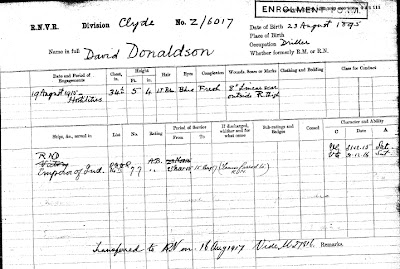 ENROLMENT
R.N.V.R. Division Clyde No. Z/6017
Date of Birth 23 August 1895
Place of Birth
Name in full David Donaldson
Occupation Driller
Whether formerly R.M. or R.N.
Date and Period of Engagements
Chest, in.
Height
Ft. in.
Hair
Eyes
Complexion
Wounds, Scars or Marks
Clothing and Bedding
Class for Conduct
19 August 1915
Hostilities
34½ 5 4 Lt Br Blue Fresh 8" Linear scar
outside R. Thigh
Ships, &c., served in
List
No.
Rating
Period of Service
From To
If discharged, whither and for what cause
Sub-ratings and Badges
Conned
Character and Ability
C Date A
RND
Victory
Emperor of Ind. 77
A.B.
VG 31.12.15 Sat
VG 31.12.16 Sat
Transferred to RN on 16 Aug 1917 Vide
Remarks.